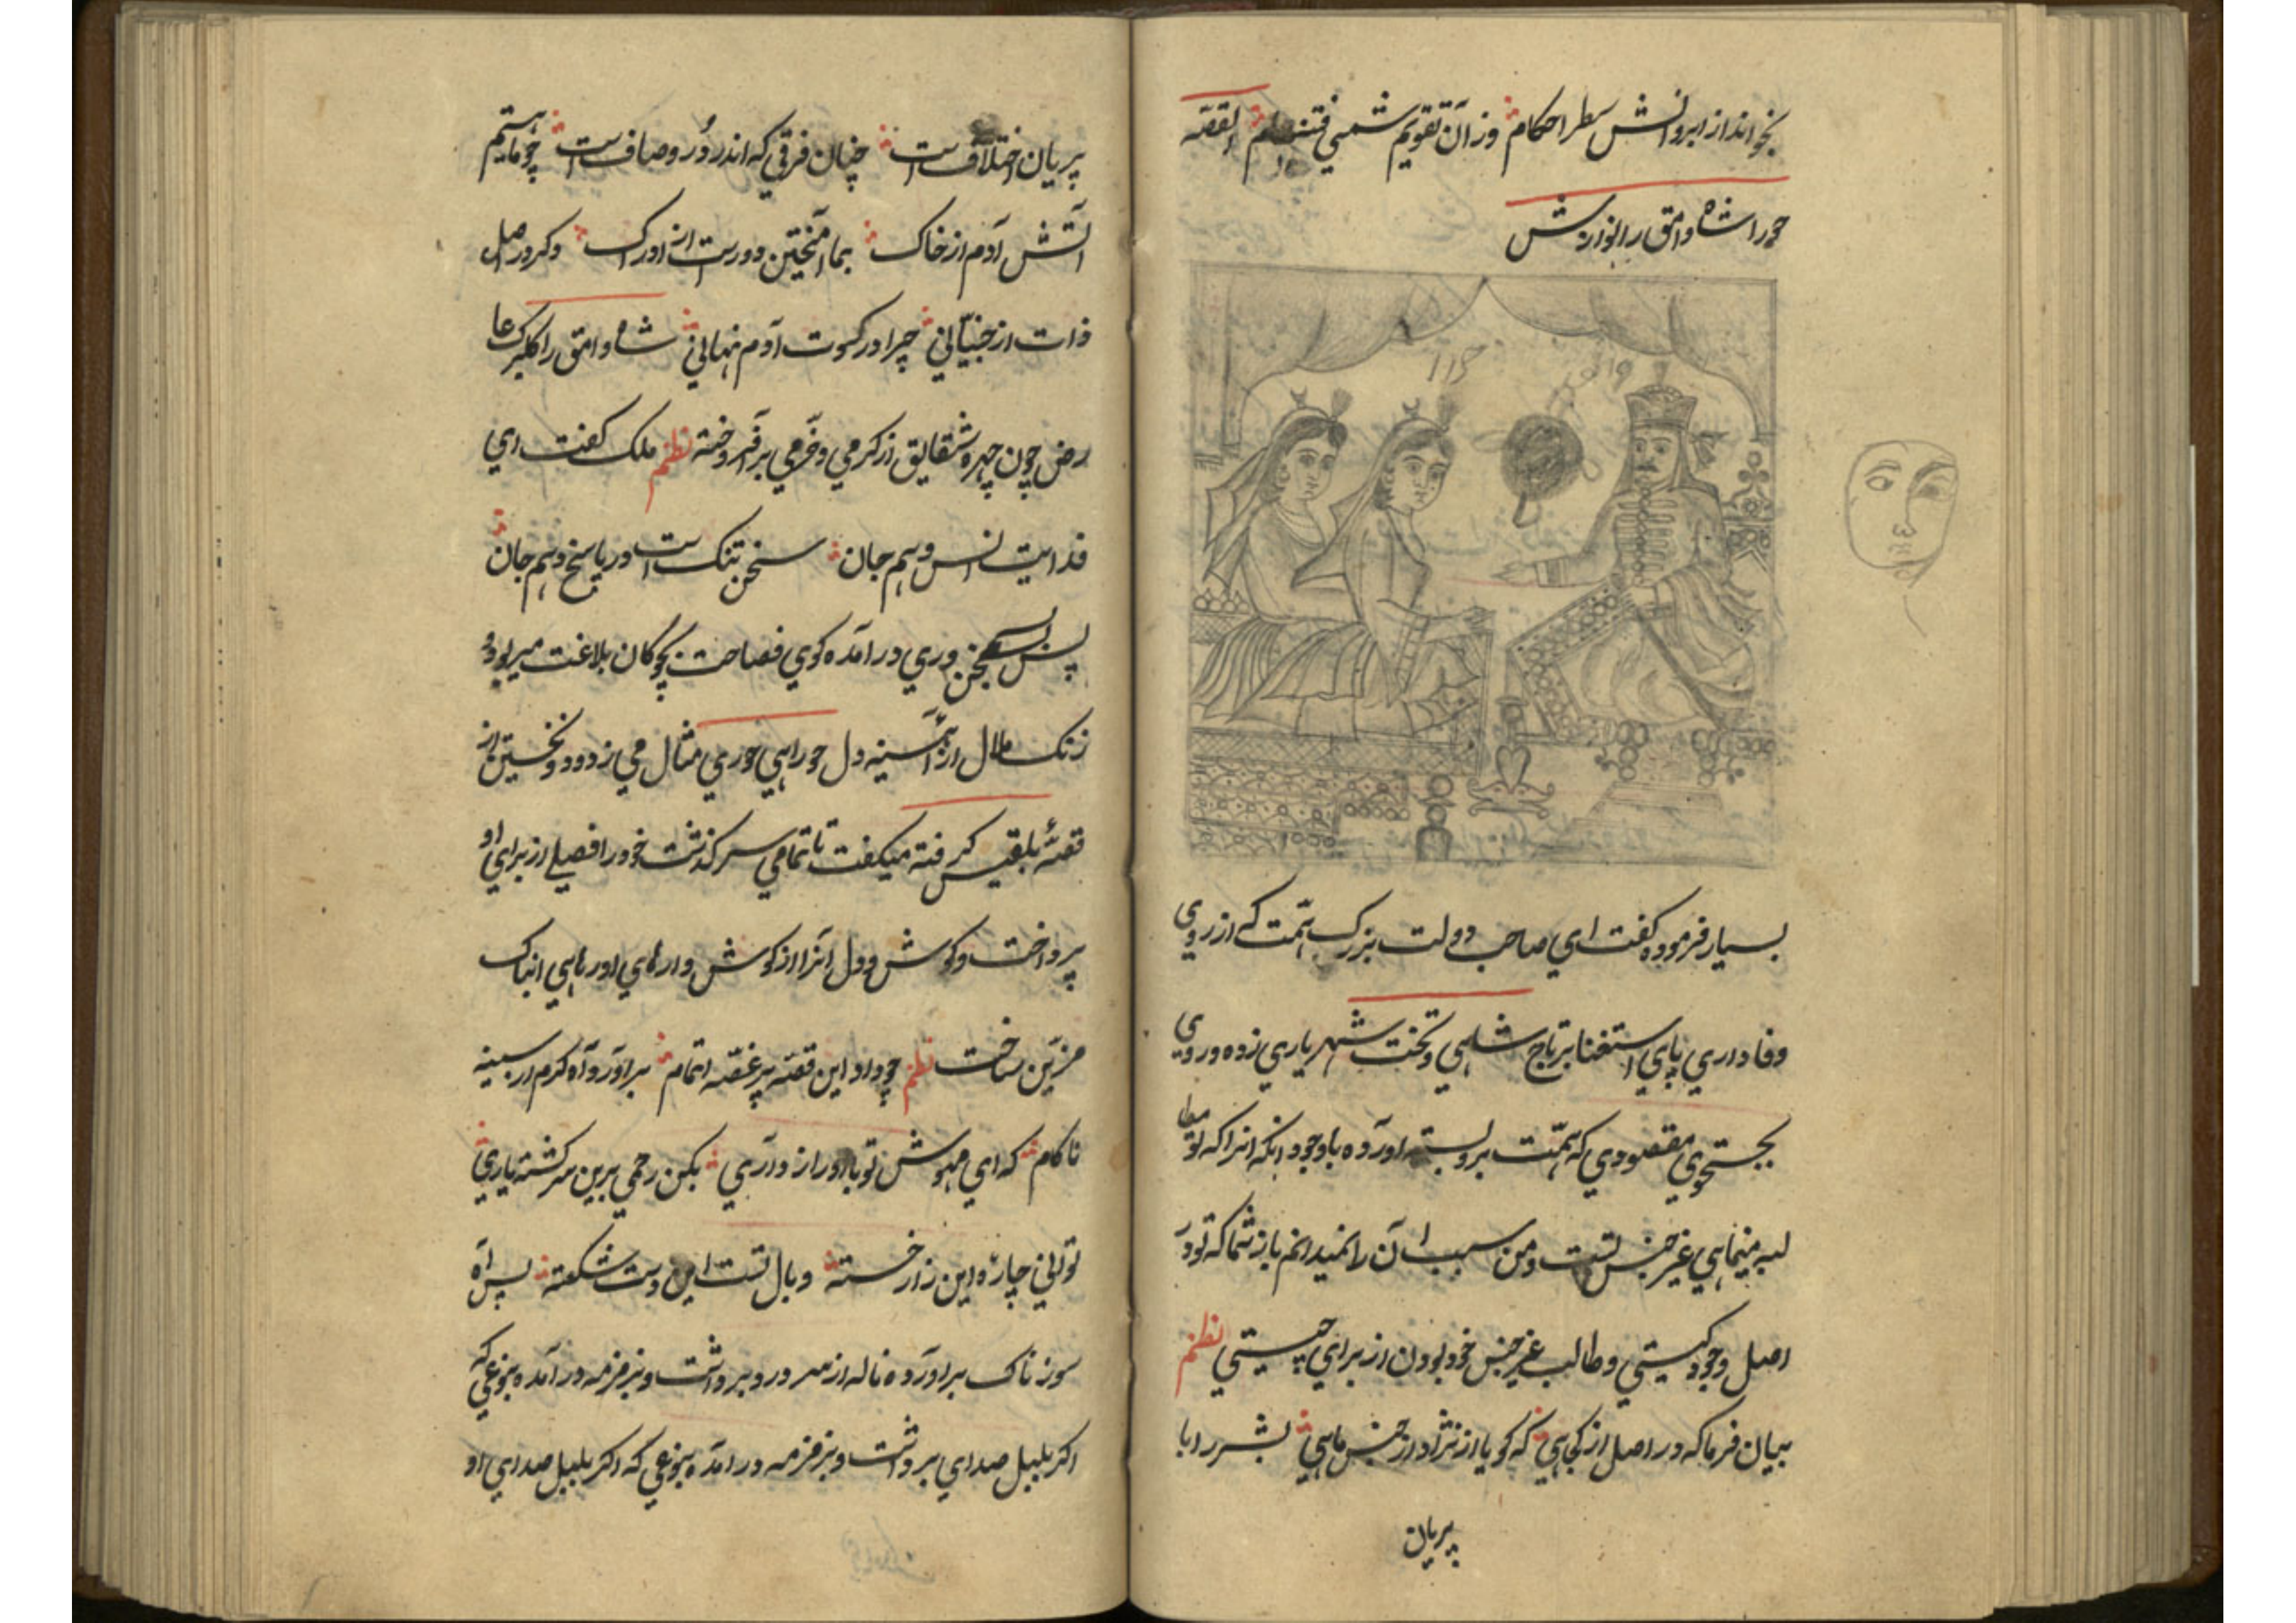 بخواند از ابروانش سطر احکام وز آن تقویم شمسی القصه
حورا شاه وامق را نوازش
حورا
وامق
بسیار فرموده کفت ای صاحب دولت بزرک همت که از روی
وفاداری پای استغنا بر تاج شاهی و تخت شهریاری زده و روی
بجستجوی مقصودی که همت برو بسته اورده باوجود انکه انرا که تو
مینمایی غیر جنس تست و من سبب آن را نمیدانم باز شما که تو در
اصل وجود کیستی و طالب غیر جنس خود بودن از برای چیستی نظم
بیان فرما که در اصل از کجایی که کویا از نژاد از جنس مایی بشر را با
پریان
پریان اختلاف است چنان فرقی که اندر درد و صاف است چو ماییم
آتش آدم از خاک بما آمیختن دور است از ادراک وکر در اصل
ذات از جنیانی چرا در کسوت آدم نهانی شاه وامق را
رض چون چهره شقایق از کرمی و خرمی بر افروخته نظم ملک کفت ای
فدایت انس و هم جان سخن تنک است در پاسخ و هم جان
پس بسخن وری در آمده کوی فصاحت بچوکان بلاغت میربود و
زنک ملال از آئینه دل حورایی حوری مثال می زدود و نخستین از
قصۀ بلقیس کرفته میکفت تا تمامی سرکذشت خود را از برای او
پرداخت و کوش و دل انرا از کوش وارهای
مزین ساخت نظم چو داد این قصۀ پر غصه اتمام براورد آه کرم از سینه
ناکام که ای مهوش تو با او راز داری بکن رحمی برین سرکشته یاری
توانی چارۀ این زار خسته وبال تست این دست شکسته پس آه
سوزناک براورده ناله از سر درد برداشت و بزمزمه در آمده بنوعی که
اکر بلبل صدای برداشت و بزمزمه در آمده بنوعی که اکر بلبل صدای او